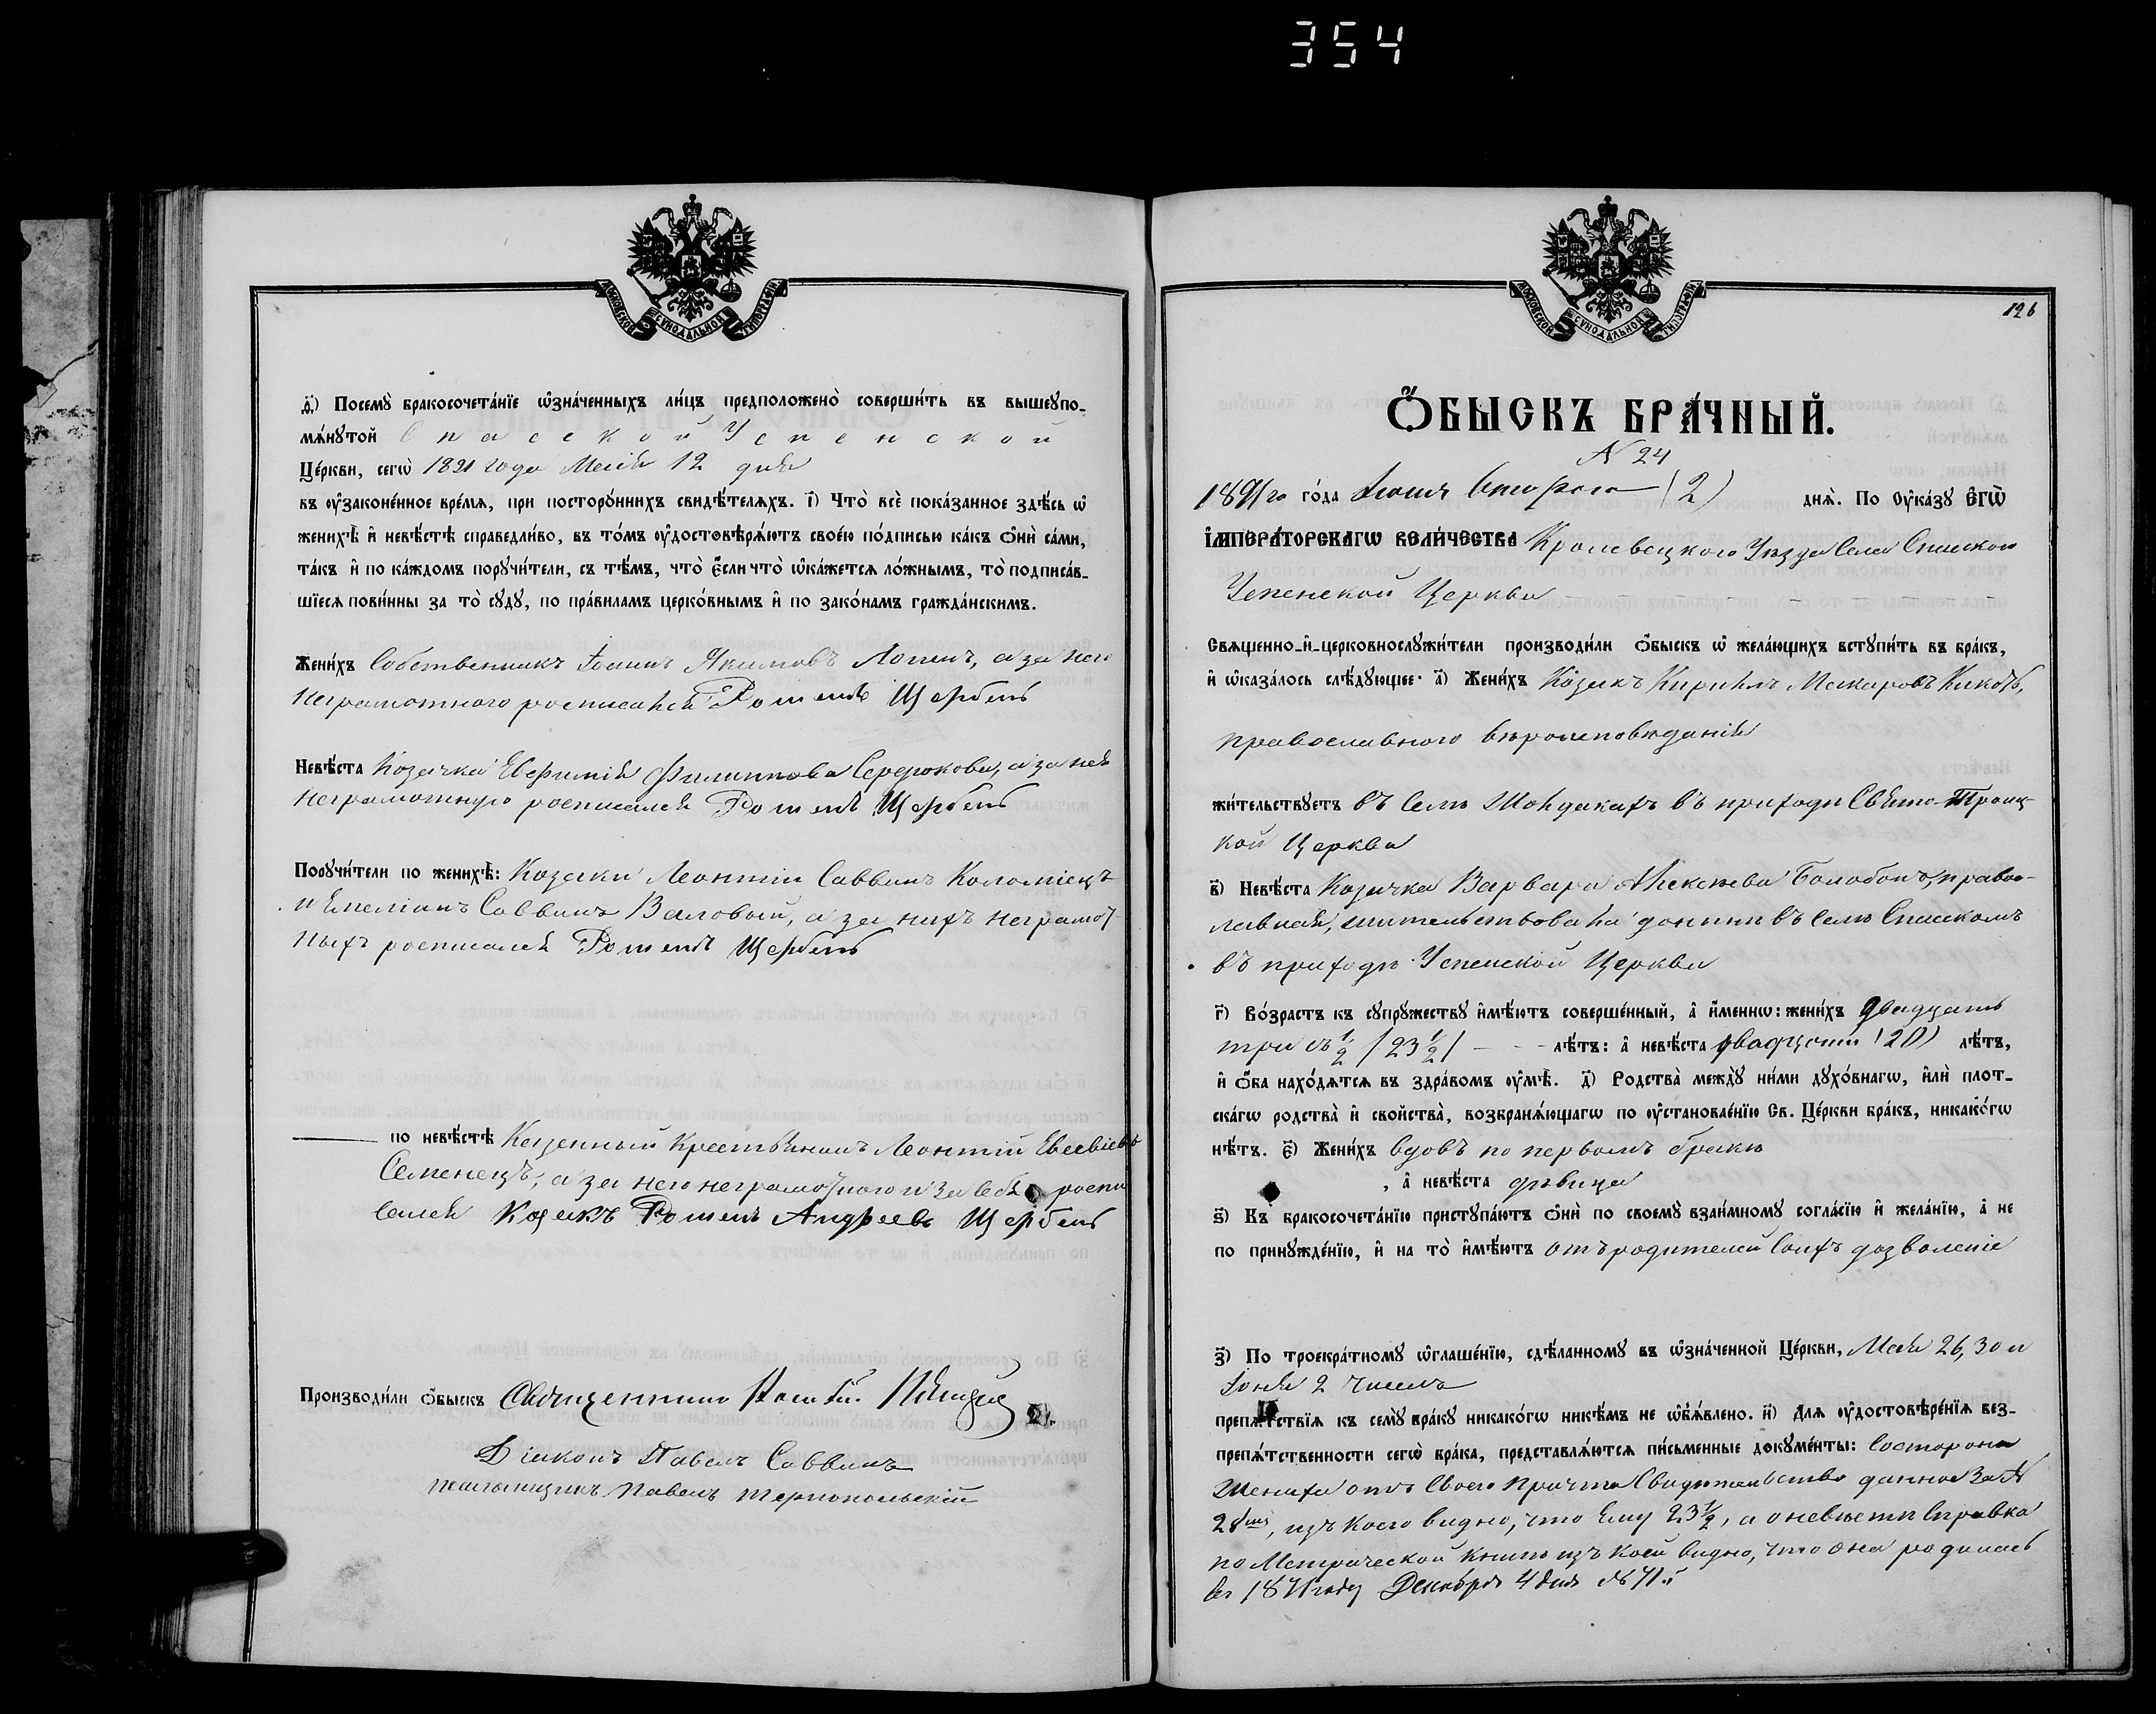 354
МОСКОВСКОЙ СѴНОДАЛЬНОЙ ТИПОГРАФІИ
ѳ҃) Посемꙋ̀ бракосочета́нїе ѡ҆зна́ченныхъ ли́цъ предположено̀ соверши́ть въ вышеꙋпо-
мѧ́нꙋтой Спасской Успенской
Це́ркви, сегѡ̀ 1891 года Маія 12 дня
въ ᲂу҆законе́нное вре́мѧ, при посторо́ннихъ свидѣ́телѧхъ. і҃) Что̀ всѐ пока́занное здѣ́сь ѡ҆
женихѣ̀ и҆ невѣ́стѣ справедли́во, въ то́мъ ᲂу҆достовѣрѧ́ютъ свое́ю по́дписью ка́къ ѻ҆нѝ са́ми,
та́къ и҆ по ка́ждомъ порꙋчи́тели, съ тѣ́мъ, что̀ є҆́сли что̀ ѡ҆ка́жетсѧ ло́жнымъ, то̀ подписа́в-
шїесѧ пови́нны за то̀ сꙋдꙋ̀, по пра́виламъ церко́внымъ и҆ по зако́намъ гражда́нскимъ.
Жени́хъ Собственникъ Іоаннъ Якимовъ Лопенъ, а за него
неграмотного росписался Щербакъ
Невѣ́ста Козачка Евфимія Филиппова Сердюкова, а за нея
неграмотную росписался Щербакъ
Порꙋчи́тели по женихѣ̀: Козаки Леонтій Саввинъ Коломіецъ
и Емеліанъ Саввинъ Валовый, а за нихъ неграмот-
ныхъ росписался Щербакъ
по невѣ́стѣ Казенный Крестьянинъ Леонтій Евсевіевъ
Семенецъ, а за него неграмотного и за себя роспи
сался Козакъ Андреевъ Щербакъ
Производи́ли ѻ҆́быскъ Священникъ
Діаконъ Павелъ Саввинъ
Псаломщикъ Павелъ Тернопольскій
МОСКОВСКОЙ СѴНОДАЛЬНОЙ ТИПОГРАФІИ
126
Ѻ҆́БЫСКЪ БРА́ЧНЫЙ.
N 24
1891го го́да Іюня второго (2) днѧ̀. По ᲂу҆ка́зꙋ Є҆гѡ̀
І҆МПЕРА́ТОРСКАГѠ ВЕЛИ́ЧЕСТВА Кролевецкого Уѣзда Села Спаского
Успенской Церкви
Свѧщенно-и҆-церковнослꙋжи́тели производи́ли ѻ҆́быскъ ѡ҆ жела́ющихъ встꙋпи́ть въ бра́къ,
и҆ ѡ҆каза́лось слѣ́дꙋющее: а҃) Жени́хъ Козакъ Кириллъ Макаровъ
православного вѣроисповѣданія
жи́тельствꙋетъ въ Селѣ въ приходѣ Свято-Троиц-
кой Церкви
в҃) Невѣ́ста Козачка Варвара Алексѣева Болобонъ, правос-
лавная, жительствовала донынѣ въ Селѣ Спаскомъ
въ приходѣ Успенской Церкви
г҃) Во́зрастъ къ сꙋпрꙋ́жествꙋ и҆мѣ́ютъ соверше́нный, а҆ и҆́меннѡ: жени́хъ двадцать
три съ 1/2 /23 1/2/ — - - лѣ́тъ: а҆ невѣ́ста двадцати (20) лѣ́тъ,
и҆ ѻ҆́ба нахо́дѧтсѧ въ здра́вомъ ᲂу҆мѣ̀. д҃) Родства̀ междꙋ̀ ни́ми дꙋхо́внагѡ, и҆лѝ плот-
ска́гѡ родства̀ и҆ свойства̀, возбранѧ́ющагѡ по ᲂу҆становле́нїю Св. Це́ркви бра́къ, никако́гѡ
нѣ́тъ. є҃) Жени́хъ вдовъ по первомъ бракѣ
, а҆ невѣ́ста дѣвица
ѕ҃) Къ бракосочета́нїю пристꙋпа́ютъ ѻ҆нѝ по своемꙋ̀ взаи́мномꙋ согла́сїю и҆ жела́нїю, а҆ не
по принꙋжде́нїю, и҆ на то̀ и҆мѣ́ютъ отъ родителей Своихъ дозволеніе
з҃) По троекра́тномꙋ ѡ҆глаше́нїю, сдѣ́ланномꙋ въ ѡ҆зна́ченной Це́ркви, Мая 26, 30 и
Іюня 2 чиселъ
препѧ́тствїѧ къ семꙋ̀ бра́кꙋ никако́гѡ никѣ́мъ не ѡ҆б̾ѧ́влено. и҃) Длѧ ᲂу҆достовѣре́нїѧ без-
препѧ́тственности сегѡ̀ бра́ка, представлѧ́ютсѧ пи́сьменные докꙋме́нты: Состороны
Жениха отъ Своего Причта Свидѣтельство данное За N
28, изъ коего видно, что Ему 23 1/2, а о невѣсти Справка
по Метрической книгѣ изъ коей видно, что Она родилась
въ 1871 году Декабря 4 дня № 71.